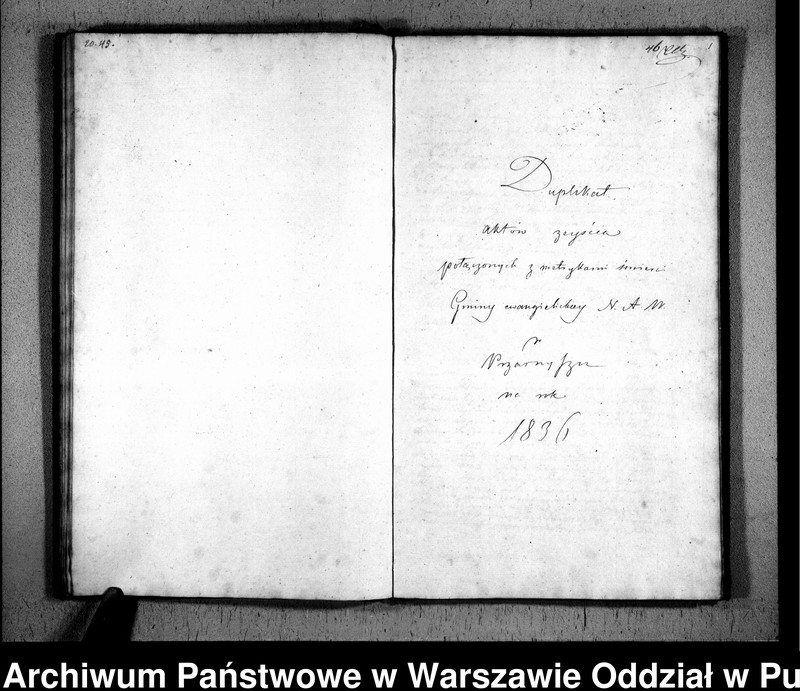 20.43.
46
1
Duplikat
aktów zeyścia
połączonych z metrykami śmierci
Gminy ewangielickiey N. A. W.
w
Przasnyszu
na rok
1836
Archiwum Państwowe w Warszawie Oddział w Pu